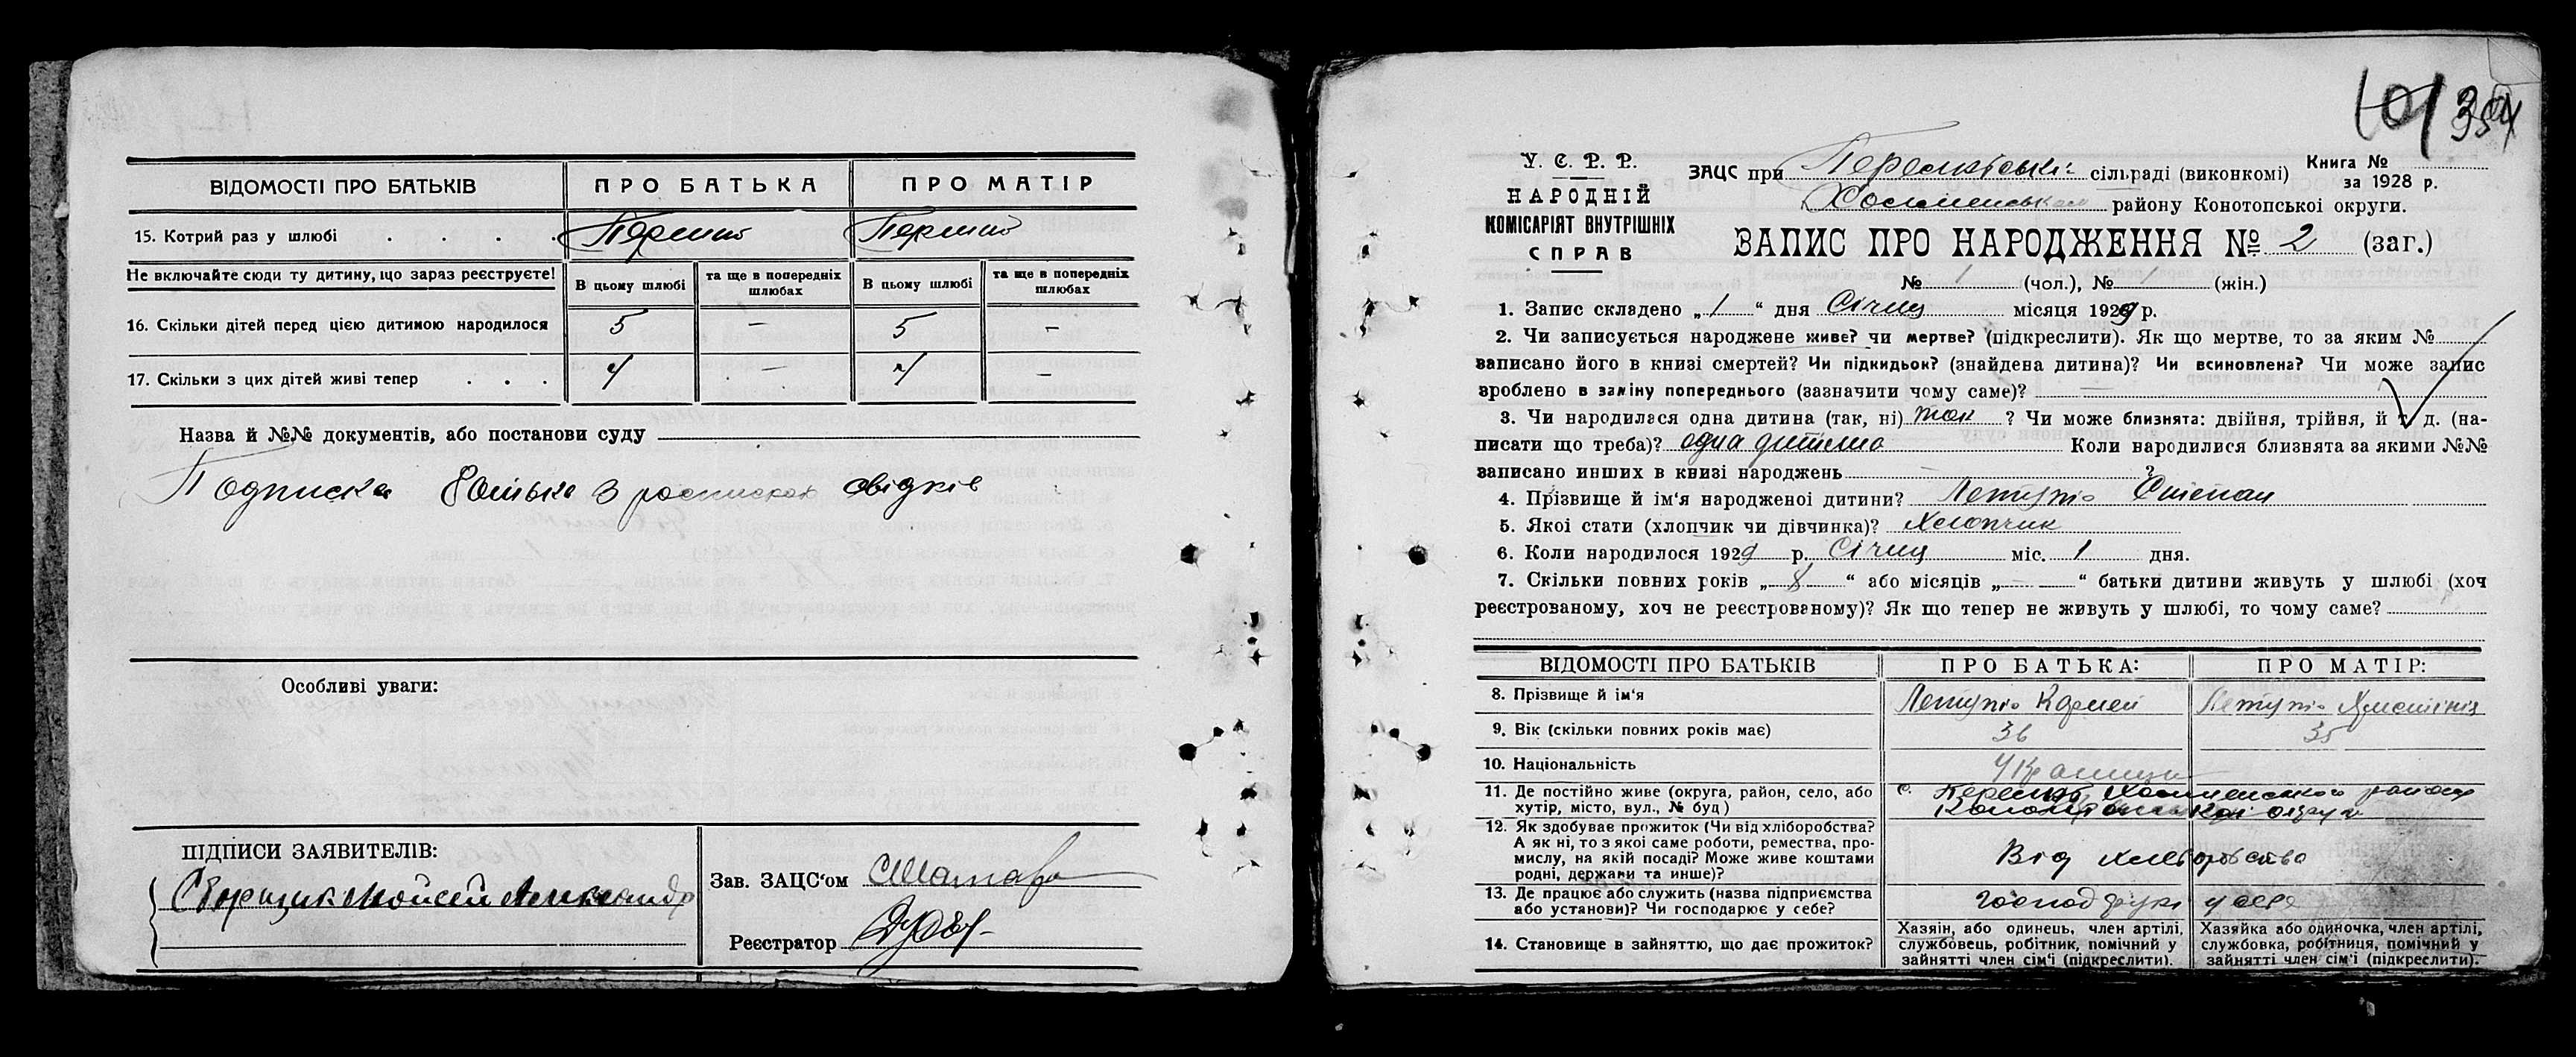 ВІДОМОСТІ ПРО БАТЬКІВ ПРО БАТЬКА ПРО МАТІР
15. Котрий раз у шлюбі . . . .
Не включайте сюди ту дитину, що зараз реєструєте! В цьому шлюбі та ще в попередніх шлюбах В цьому шлюбі та ще в попередніх шлюбах
16. Скільки дітей перед цією дитиною народилося 5 – 5 –
17. Скільки з цих дітей живі тепер . . . 4 – 4 –
Назва й №№ документів, або постанови суду
Подписка батька з роспиской свідків
Особливі уваги:
ПІДПИСИ ЗАЯВИТЕЛІВ:
Мойсей
Зав. ЗАЦС'ом
Реєстратор
101
У. С. Р. Р.
НАРОДНІЙ
КОМІСАРІЯТ ВНУТРІШНІХ
СПРАВ
ЗАЦС при сільраді (виконкомі)
району Конотопської округи.
Книга №
за 1928 р.
ЗАПИС ПРО НАРОДЖЕННЯ № 2 (заг.)
№ 1 (чол.), № 1 (жін.)
1. Запис складено „ 1 “ дня Січня місяця 1929 р.
2. Чи записується народжене живе? чи мертве? (підкреслити). Як що мертве, то за яким №
записано його в книзі смертей? Чи підкидьок? (знайдена дитина)? Чи всиновлена? Чи може запис
зроблено в заміну попереднього (зазначити чому саме)? –
3. Чи народилася одна дитина (так, ні) так ? Чи може близнята: двійня, трійня, й т. д. (на-
писати що треба)? одна дитина Коли народилися близнята за якими №№
записано инших в книзі народжень – ?
4. Прізвище й ім'я народженої дитини? Степан
5. Якої стати (хлопчик чи дівчинка)? Хлопчик
6. Коли народилося 1929 р. Січня міс. 1 дня.
7. Скільки повних років „ 8 “ або місяців „ – “ батьки дитини живуть у шлюбі (хоч
реєстрованому, хоч не реєстрованому)? Як що тепер не живуть у шлюбі, то чому саме?
ВІДОМОСТІ ПРО БАТЬКІВ ПРО БАТЬКА: ПРО МАТІР:
8. Прізвище й ім'я
9. Вік (скільки повних років має) 36 35
10. Національність
11. Де постійно живе (округа, район, село, або
хутір, місто, вул., № буд) с.
округи
12. Як здобуває прожиток (Чи від хліборобства?
А як ні, то з якої саме роботи, ремества, про-
мислу, на якій посаді? Може живе коштами
родні, держави та инше)?
Від хліборобства
13. Де працює або служить (назва підприємства
або установи)? Чи господарює у себе?
у себе
14. Становище в зайняттю, що дає прожиток?
Хазяїн, або одинець, член артілі,
службовець, робітник, помічний у
зайнятті член сім'ї (підкреслити).
Хазяйка або одиночка, член артілі,
службовка, робітниця, помічний у
зайнятті член сім'ї (підкреслити).